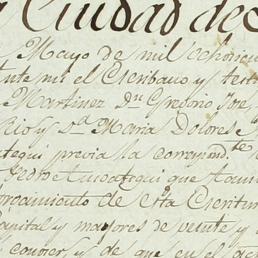 Ciudad de
Mayo de mil ochocien
mi el Escribano y tes
Martinez Dn Gregorio Jose
Rios y Da Maria Dolores
tegui previa la correspondte
Pedro que
de esta
Capital y mayores de veinte y
conocer, y de que en el ac